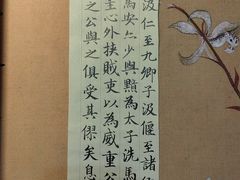 汲仁至九卿子汲偃至諸
馬安亦少與黯為太子洗馬
主心外挾賊吏以為威重公
之公與之俱受其僇矣息